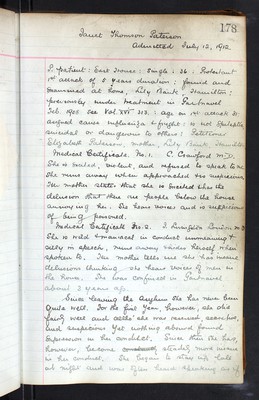 178
Janet Thomson Paterson
Admitted July 12, 1912.
P. patient: East House: Single. 36. Protestant
1st attack of 5 years duration; found and
examined at home, Lily Bank, Hamilton;
previously under treatment in Gartnavel
Feb. 1908 see Vol XVI 313. age on 1st attack 31
assigned cause influenza & fright: is not epileptic
suicidal or dangerous to others: Petitioner
Elizabeth Paterson, mother, Lily Bank, Hamilton
Medical Certificate No. 1. C. Crawford M.D.
She is excited, violent, and refuses to speak to me
She runs away when approached & is suspicious
Her mother states that she is excited & has the
delusion that there are people below the house
annoying her. She hears voices and is suspicious
of being poisoned.
Medical Certificate No. 2. J. Livingston
She is wild & maniacal in conduct
in speech, runs away & hides herself when
spoken to. Her mother tells me she has insane
delusions thinking she hears voices of men in
the house. She was confined in Gartnavel
about 2 years ago.
Since leaving the asylum she has never been
quite well. For the first year, however, she was
fairly well and altho' she was nervous,
and suspicious yet nothing absurd found
expression in her conduct. Since then she has,
however, become steadily more insane
in her conduct. She began to stay up late
at night and was often heard speaking as if